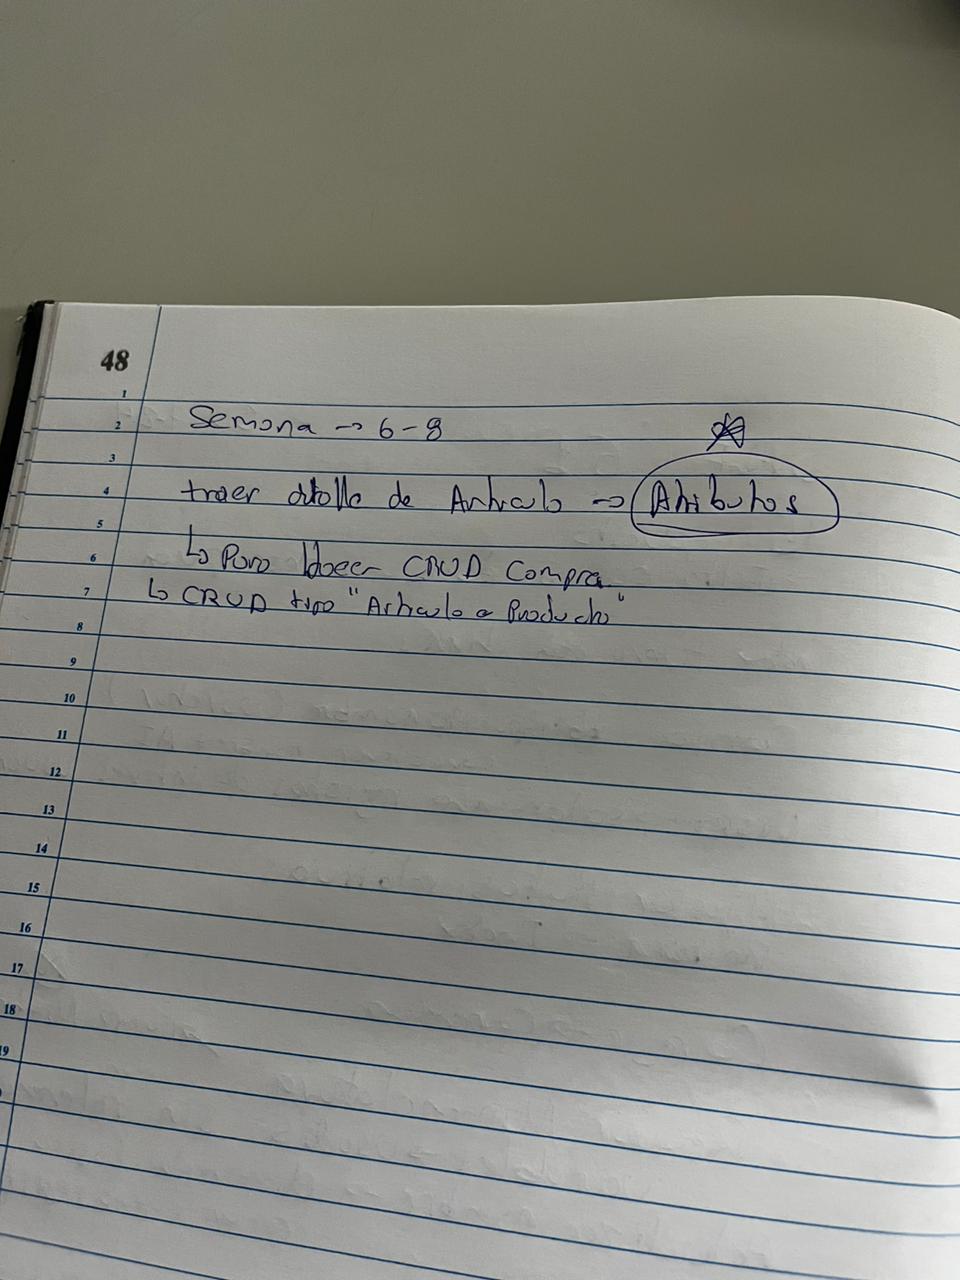 48
1
2 Semana → 6-8
3
4 traer detalle de Articulo → Atributos
5
6 ↳ Para Hacer CRUD Compra
7 ↳ CRUD tipo "Articulo o Producto"
8
9
10
11
12
13
14
15
16
17
18
19